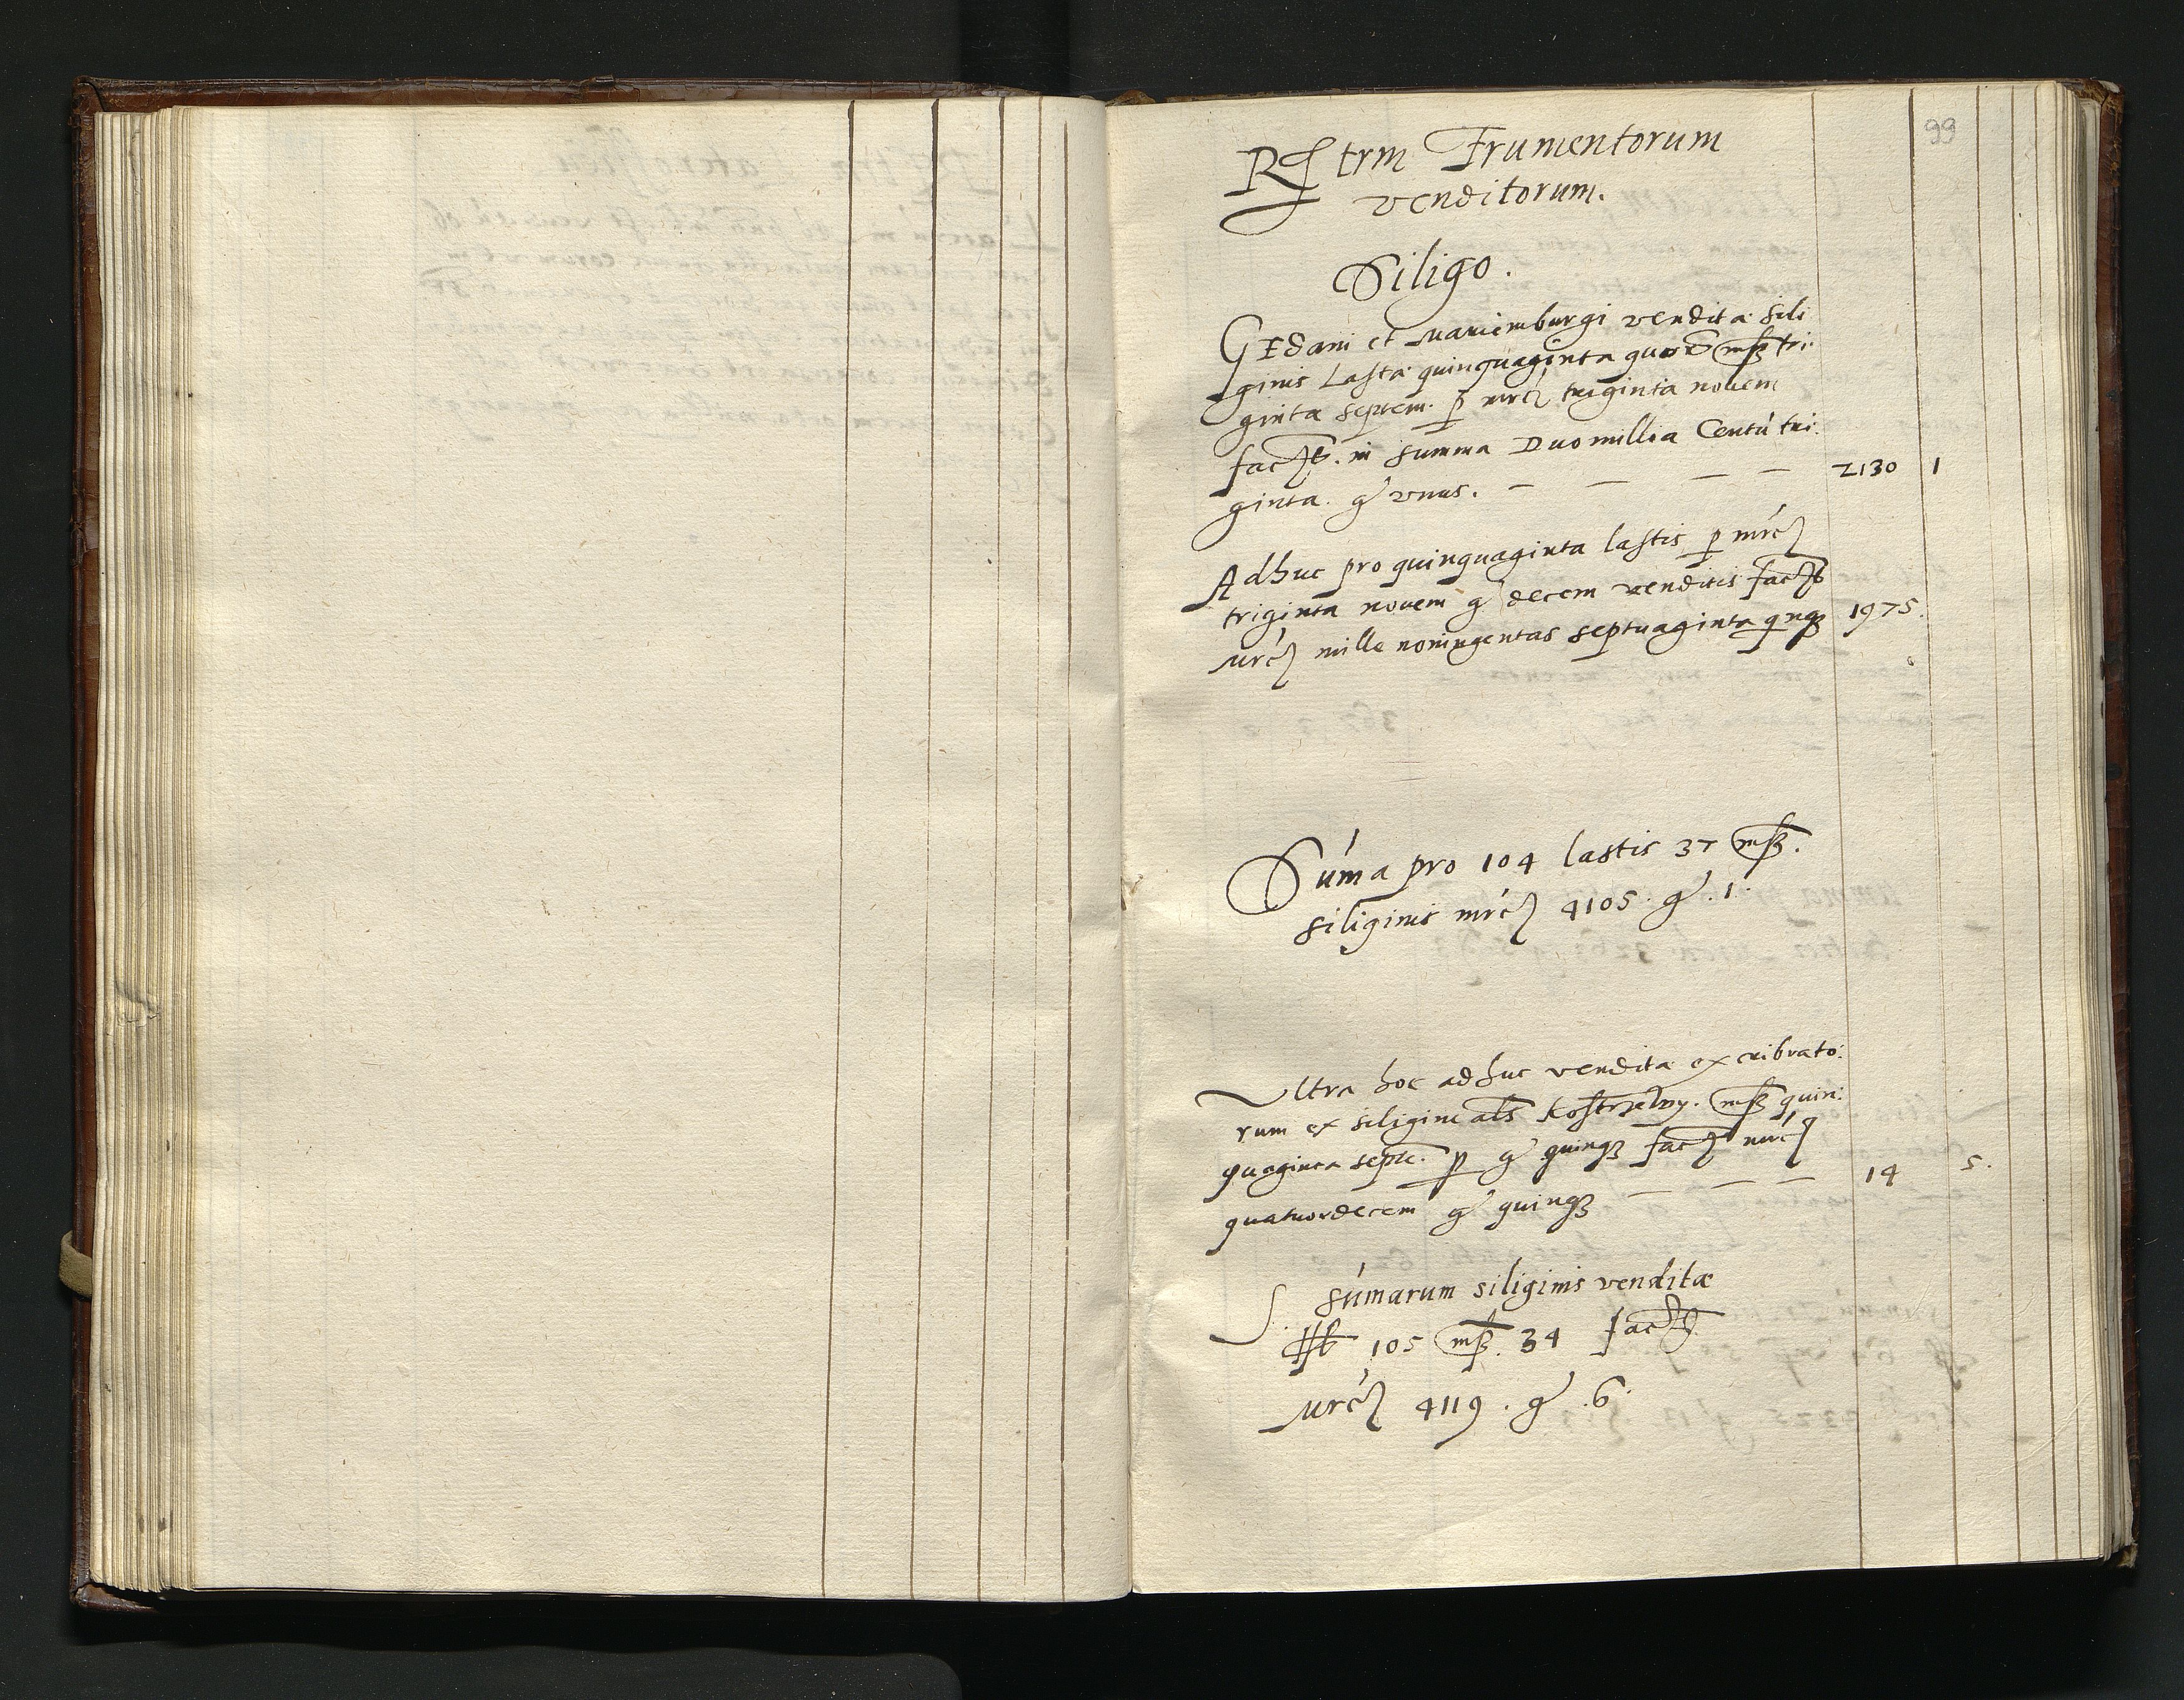 99
Rgtrm Frumentorum
venditorum.
Siligo.
GEdani et Mariemburgi vendita sili
ginis Lasta quinquaginta quatuor msz tri:
ginta septem. p mrc triginta novem
fact. in summa Duo millia Centū tri:
ginta. g unus. — — — — 2130 1
Adhuc pro quinquaginta lastis p mrc
triginta novem g decem venditis fact
Mrc mille noningentas septuaginta qnqz 1975.
Sūma pro 104 lastis 37 msz.
siliginis mrc 4105. g. 1.
Ultra hoc adhuc vendita excribrato:
rum ex siligine als Kostrzelwy. msz quin:
quaginta septē. p g quinqz fact mrc
quatuordecem g quinqz — — — 14 5.
S. sūmarum siliginis venditæ
105 msz. 34 fact
Mrc 4119. g .6.